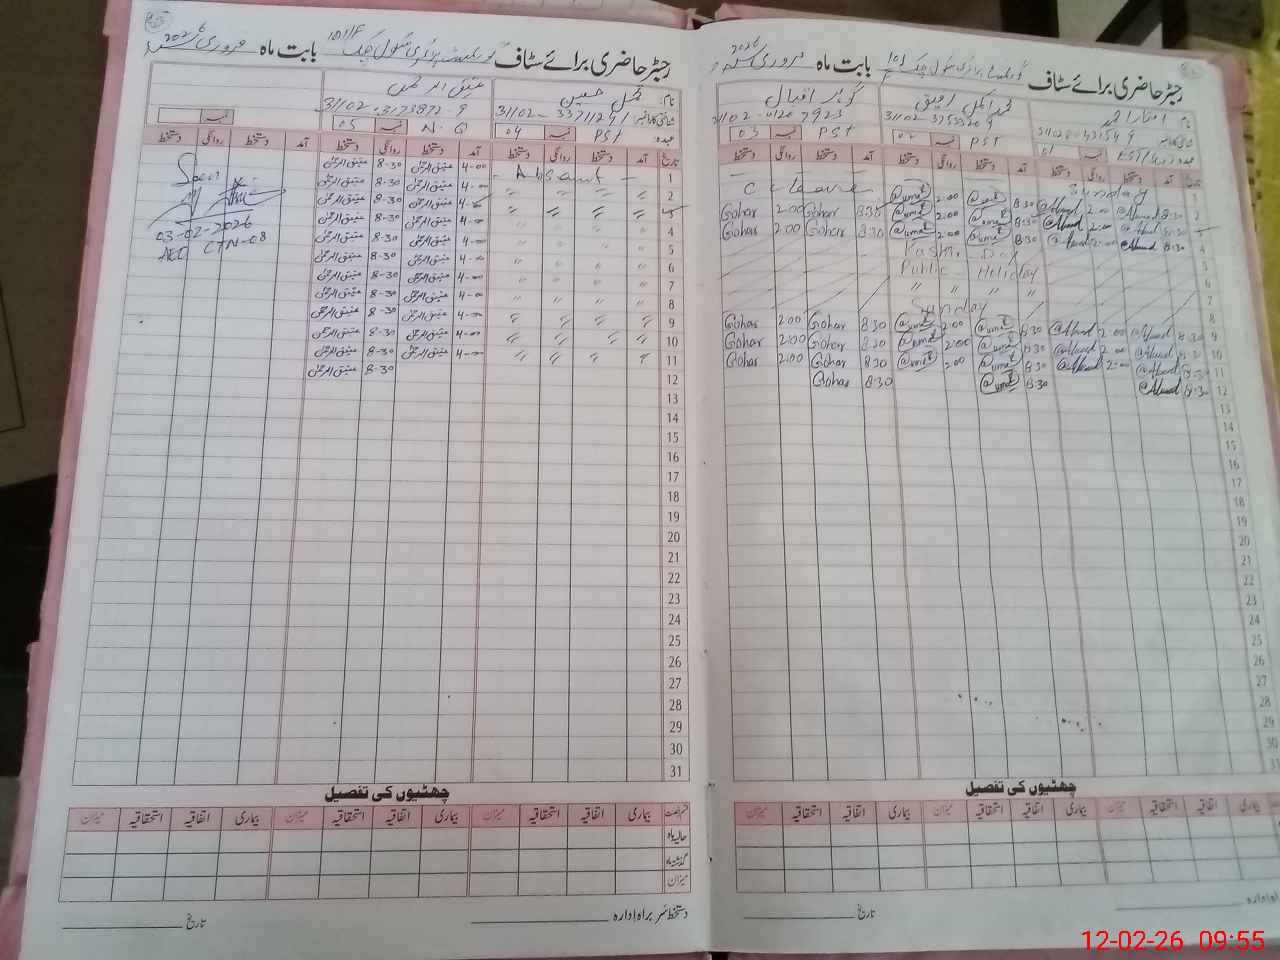 رجسٹر حاضری برائے سٹاف
بابت ماہ فروری 2026
نام:
عہدہ: PST
31102-3753320-9
PST
02
گوہر اقبال
31102-0120792-3
PST
03
تاریخ آمد دستخط روانگی دستخط آمد دستخط روانگی دستخط آمد دستخط روانگی دستخط
1 Sunday
2 8:30 Ahmad 2:00 Ahmad 8:30 Umar 2:00 Umar C-leave
3 8:30 Ahmad 2:00 Ahmad 8:30 Umar 2:00 Umar 8:30 Gohar 2:00 Gohar
4 8:30 Ahmad 2:00 Ahmad 8:30 Umar 2:00 Umar 8:30 Gohar 2:00 Gohar
5 Day
6 Public Holiday
7 " " " "
8 Sunday
9 8:30 Ahmad 2:00 Ahmad 8:30 Umar 2:00 Umar 8:30 Gohar 2:00 Gohar
10 8:30 Ahmad 2:00 Ahmad 8:30 Umar 2:00 Umar 8:30 Gohar 2:00 Gohar
11 8:30 Ahmad 2:00 Ahmad 8:30 Umar 2:00 Umar 8:30 Gohar 2:00 Gohar
12 8:30 Ahmad 8:30 Umar 8:30 Gohar
13
14
15
16
17
18
19
20
21
22
23
24
25
26
27
28
29
30
31
چھٹیوں کی تفصیل
بیماری اتفاقیہ استحقاقیہ میزان بیماری اتفاقیہ استحقاقیہ میزان بیماری اتفاقیہ استحقاقیہ میزان
تاریخ
رجسٹر حاضری برائے سٹاف
بابت ماہ فروری 2026
نام:
شناختی کارڈ نمبر 31102-3371129-1
عہدہ: PST
04
عتیق الرحمن
31102-0317387-2-9
N.Q
05
تاریخ آمد دستخط روانگی دستخط آمد دستخط روانگی دستخط آمد دستخط روانگی دستخط
1 - Absent - 4-00 عتیق الرحمن 8-30 عتیق الرحمن
2 " " " " 4-00 عتیق الرحمن 8-30 عتیق الرحمن
3 " " " " 4-00 عتیق الرحمن 8-30 عتیق الرحمن
4 " " " " 4-00 عتیق الرحمن 8-30 عتیق الرحمن
5 " " " " 4-00 عتیق الرحمن 8-30 عتیق الرحمن
6 " " " " 4-00 عتیق الرحمن 8-30 عتیق الرحمن
7 " " " " 4-00 عتیق الرحمن 8-30 عتیق الرحمن
8 " " " " 4-00 عتیق الرحمن 8-30 عتیق الرحمن
9 " " " " 4-00 عتیق الرحمن 8-30 عتیق الرحمن
10 " " " " 4-00 عتیق الرحمن 8-30 عتیق الرحمن
11 " " " " 4-00 عتیق الرحمن 8-30 عتیق الرحمن
12 8-30 عتیق الرحمن
13
14
15
16
17
18
19
20
21
22
23
24
25
26
27
28
29
30
31
Seen
03-02-2026
AEO CTN-08
چھٹیوں کی تفصیل
قسم رخصت بیماری اتفاقیہ استحقاقیہ میزان بیماری اتفاقیہ استحقاقیہ میزان بیماری اتفاقیہ استحقاقیہ میزان
حالیہ ماہ
گذشتہ ماہ
میزان
دستخط سربراہ ادارہ
تاریخ
12-02-26 09:55